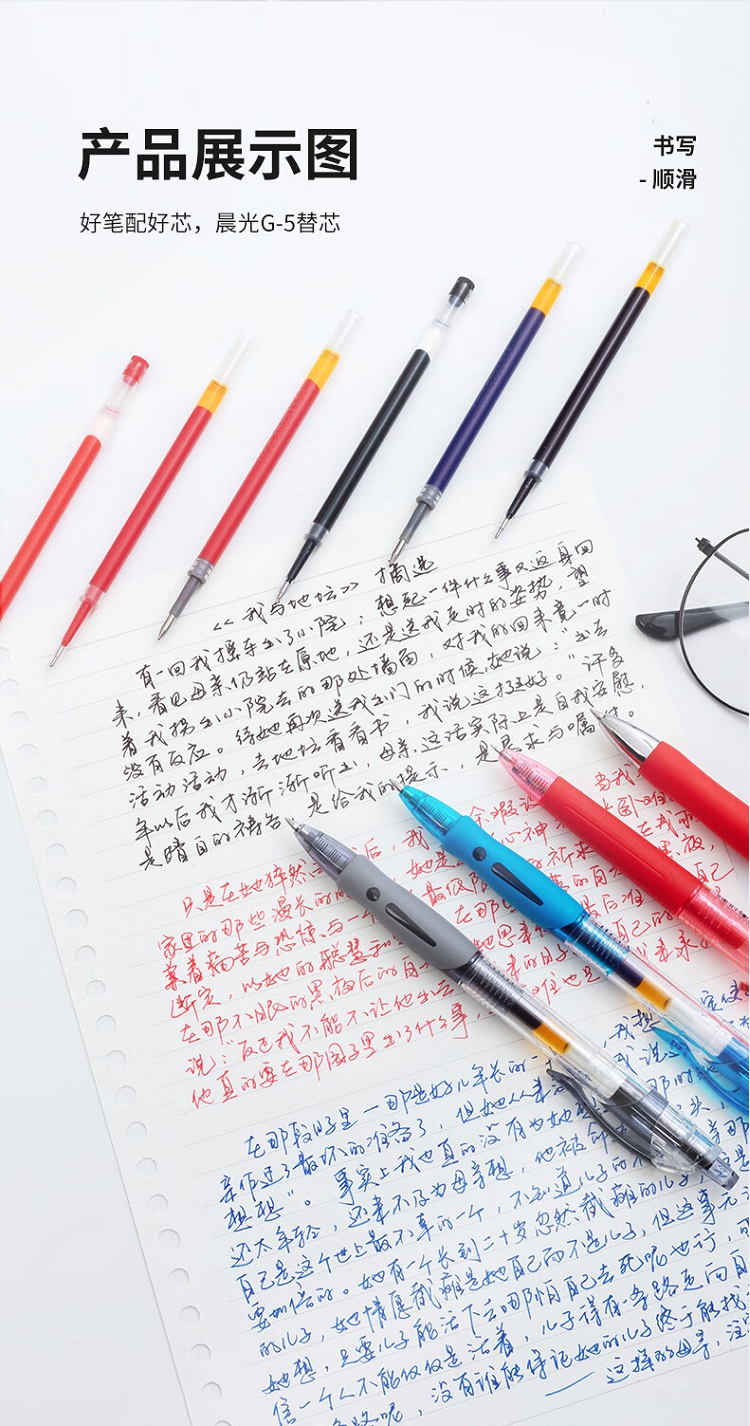 产品展示图
好笔配好芯，晨光G-5替芯
书写
- 顺滑
<<我与地坛>> 摘选
有一回我摇车出了小院；想起一件什么事又返身回
来，看见母亲仍站在原地，还是送我走时的姿势，望
着我拐出小院去的那处墙角，对我的回来竟一时
没有反应。待她再次送我出门的时候，她说："出去
活动活动，去地坛看看书，我说这挺好。"许多
年以后我才渐渐听出，母亲这话实际上是自我安慰，
是暗自的祷告，是给我的提示，是恳求与嘱付。
只是在她猝然 后，我 余暇设 当我
家里的那些漫长的
兼着痛苦与恐惧与一个
断定，以她的聪慧和
在那不眠的黑夜后的
说："反正我不能不让他出去
他真的要在那园子里出了什么事，
在那段日子里—那是好几年长的一
亲作过了最坏的准备了，但她从来没
想想"。事实上我也真的没有为她
还太年轻，还来不及为母亲想，他被命
自己是这个世上最不幸的一个，不知道儿子的不
要加倍的。她有一个长到二十岁忽然截瘫的儿子，
的儿子，她情愿截瘫是她自己而不是儿子，但这事无
她想，只要儿子能活下去哪怕自己去死呢也行，可
信一个人不能仅仅是活着，儿子得有一条路走向自
路呢，没有谁能保证她的儿子终于能找
——这样的母亲，注